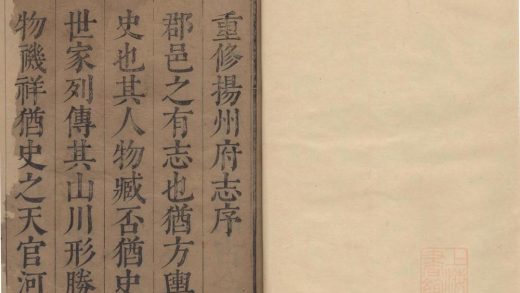 重修揚州府志序
郡邑之有志也猶方輿
史也其人物臧否猶史
世家列傳其山川形勝
物禨祥猶史之天官河